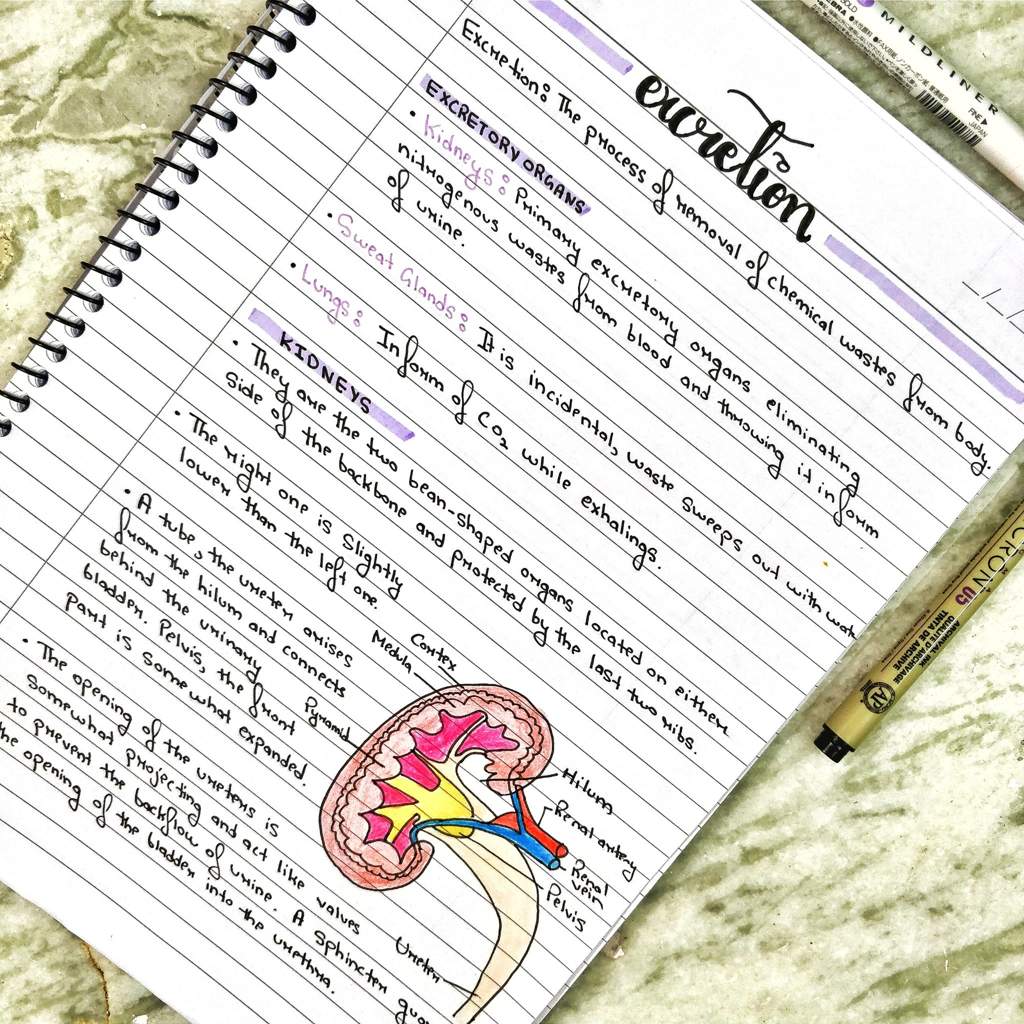 excretion
Excretion: The process of removal of chemical wastes from body.
EXCRETORY ORGANS
• Kidneys: Primary excretory organs eliminating
nitrogenous wastes from blood and throwing it in form
of urine.
• Sweat Glands: It is incidental, waste sweeps out with wat
• Lungs: In form of CO₂ while exhalings.
KIDNEYS
• They are the two bean-shaped organs located on either
side of the backbone and protected by the last two ribs.
• The right one is slightly
lower than the left one.
• A tube, the ureter arises
from the hilum and connects
behind the urinary
bladder. Pelvis, the front
part is somewhat expanded.
• The opening of the ureters is
somewhat projecting and act like values
to prevent the backflow of urine. A sphincter gua
the opening of the bladder into the urethra.
Cortex
Medula
Pyramid
Hilum
Renal artery
Renal
vein
Pelvis
Ureter
MILDLINER
FINE
JAPAN
CRON 05
ARCHIVAL INK
QUALITÉ D'ARCHIVAGE
TINTA DE ARCHIVE
AP